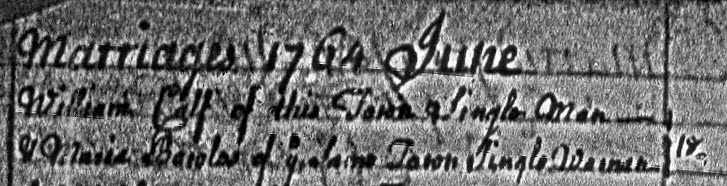 Marriages 1764 June
William Cuff of this Town a Single Man
& Maria of Town Single Woman 18.